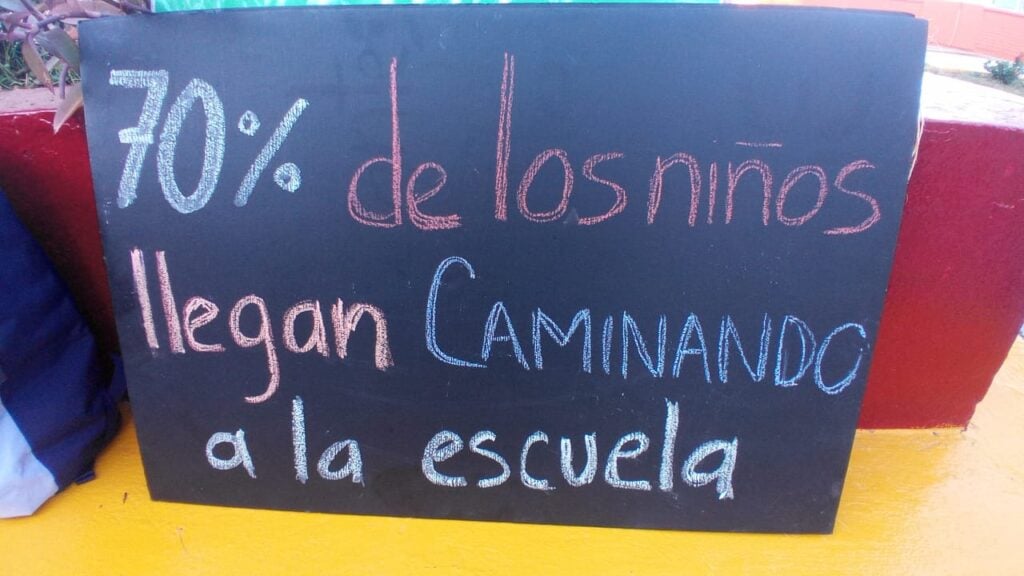 70% de los niños
llegan CAMINANDO
a la escuela